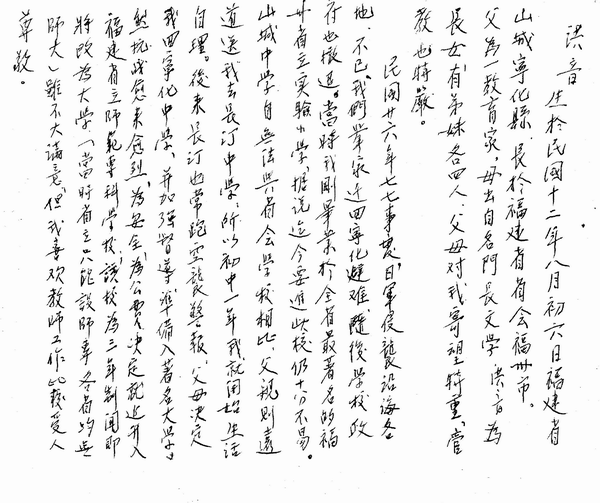 洪音 生於民國十二年八月初六日福建省
山城寧化縣，長於福建省省會福州市。
父為一教育家，母出自名門長文學，洪音為
長女，有弟妹各四人，父母對我寄望特重，管
教也特嚴。
民國廿六年七七事變，日軍侵襲沿海各
地，不已，我們舉家近回寧化避難，隨後學校政
府也撤退。當時我剛畢業於全省最著名的福
州省立實驗小學，據說迄今要進此校仍十分不易。
山城中學自無法與省會學校相比，父親則遠
道送我去長汀中學，所以初中一年我就開始生活
自理。後來長汀也常跑空襲警報，父母決定
我回寧化中學，并加強督導，準備入著名大學。
然抗戰愈來愈烈，為安全，為公費，決定就近升入
福建省立師範專科學校，該校為三年制，聞即
將改為大學（當時省立只能設師專，各省均無
師大）雖不大滿意，但我喜欢教師工作，比較受人
尊敬。